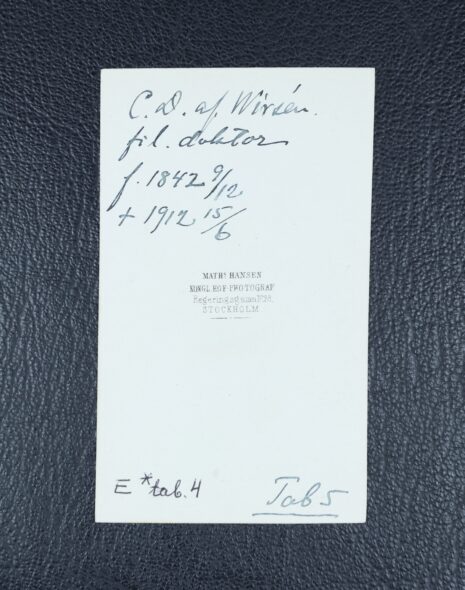 C. D. af. Wirsén.
fil. doktor
f. 1842 9/12
+ 1912 15/6
MATHS HANSEN
KONGL. HOF-PHOTOGRAF
Regeringsgatan No 28.
STOCKHOLM
E * tab. 4
Tab 5